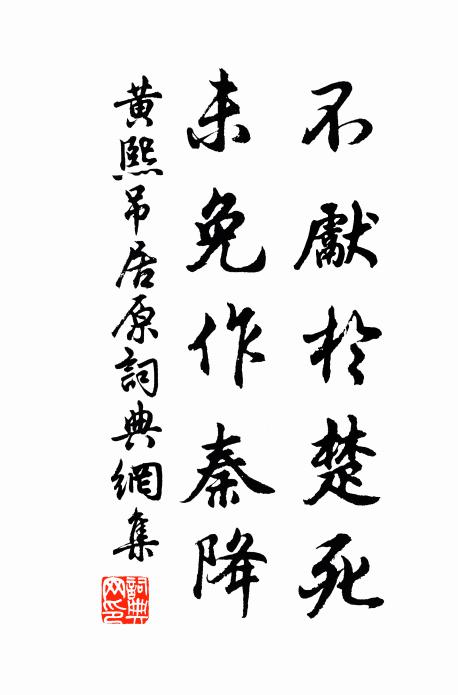 不獻於楚死
未免作秦降
黃熙吊居原詞典網集
詞典网印